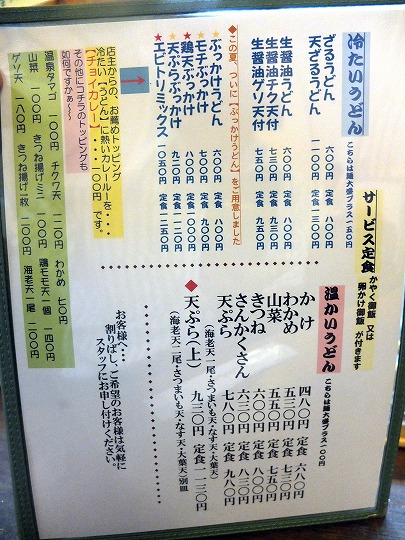 冷たいうどん
こちらは麺大盛プラス一五〇円
ざるうどん 六〇〇円 定食 八〇〇円
天ざるうどん 一一〇〇円 定食 一三〇〇円
生醤油うどん 六〇〇円 定食 八〇〇円
生醤油チク天付 七三〇円 定食 九三〇円
生醤油ゲソ天付 七五〇円 定食 九五〇円
◆この夏、ついに【ぶっかけうどん】をご用意しました
★ぶっかけうどん 六〇〇円 定食 八〇〇円
★モチぶっかけ 七〇〇円 定食 九〇〇円
★鶏天ぶっかけ 八〇〇円 定食 一〇〇〇円
★天ぷらぶっかけ 九二〇円 定食 一一二〇円
★エビトリミックス 一〇五〇円 定食 一二五〇円
店主からの、お薦めトッピング
冷たい【うどん】に熱いカレールーを・・・
【チョイカレー】・・・・一〇〇円です。
その他にコチラのトッピングも
如何ですかぁ~
温泉タマゴ 一〇〇円 チクワ天 一二〇円 わかめ 七〇円
山菜 一〇〇円 きつね揚げミニ 一〇〇円 鶏モモ天一個 一四〇円
ゲソ天 一八〇円 きつね揚げ一枚 二〇〇円 海老天一尾 二〇〇円
サービス定食 かやく御飯 又は
卵かけ御飯 が付きます
温かいうどん
こちらは麺大盛プラス一〇〇円
かけ 四八〇円 定食 六八〇円
わかめ 五三〇円 定食 七三〇円
山菜 五五〇円 定食 七五〇円
きつね 六〇〇円 定食 八〇〇円
さんかくさん 六三〇円 定食 八三〇円
天ぷら 七八〇円 定食 九八〇円
(海老天一尾・さつまいも天・なす天・大葉天)
◆天ぷら(上) 九三〇円 定食 一一三〇円
(海老天二尾・さつまいも天・なす天・大葉天)別皿
お客様へ・・・
割りばし、ご希望のお客様は気軽に
スタッフにお申し付けください。